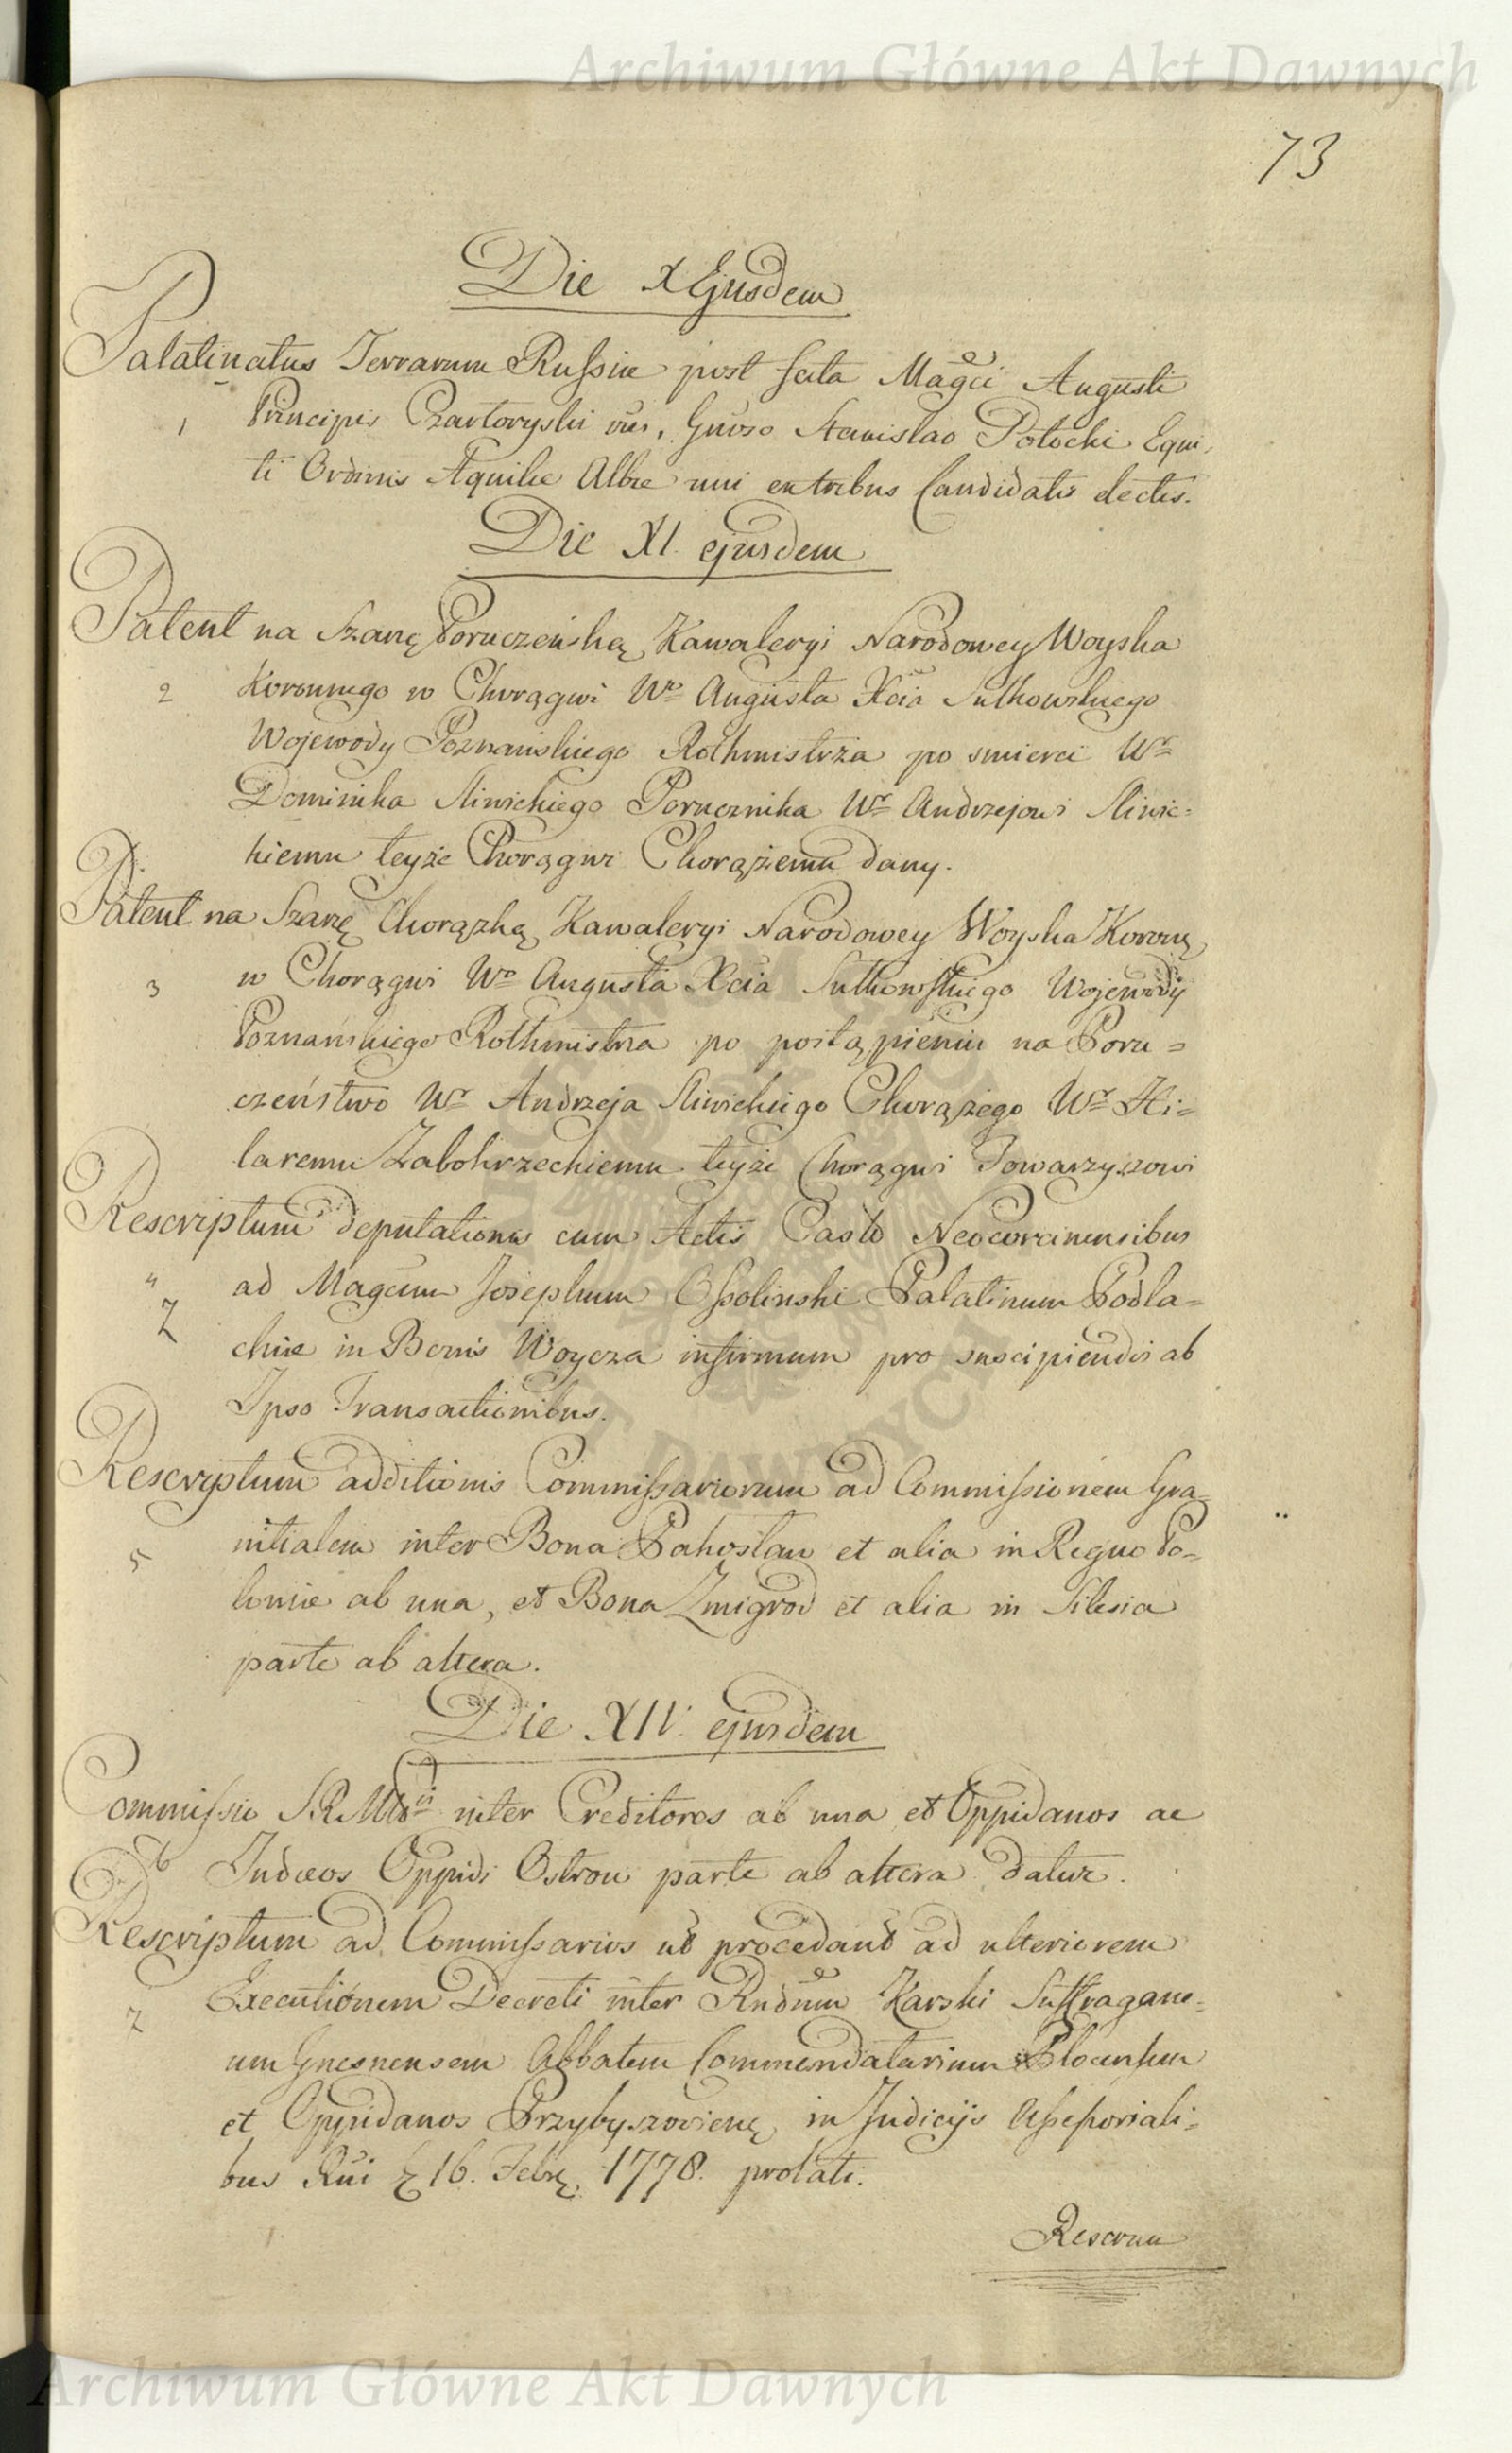 Archiwum Główne Akt Dawnych
73
Die X Ejusdem
Palatinatus Terrarum Russiæ post fata Magci Augusti
1 Principis Czartoryski Gnroso Stanislao Potocki Equi-
ti Ordinis Aquilæ Albæ uni ex tribus Candidatis electis.
Die XI. ejusdem
Patent na Szarżę Poruczeńską Kawaleryi Narodowey Woyska
2 Koronnego w Chorągwi Wo Augusta Xcia Sułkowskiego
Wojewody Poznańskiego Rothmistrza po smierci Wr
Dominika Sliwickiego Porucznika Wr Andrzejowi Sliwic=
kiemu teyże Chorągwi Chorążemu dany.
Patent na Szarżę Chorążką Kawaleryi Narodowey Woyska Koronę
3 w Chorągwi Wo Augusta Xcia Sułkowskiego Wojewody
Poznańskiego Rothmistrza po postąpieniu na Poru=
czeństwo Wr Andrzeja Sliwickiego Chorążego Wr Hi=
laremu Zabokrzeckiemu teyże Chorągwi Towarzyszowi
Rescriptum deputationis cum Actis Castr Neocorcinensibus
4 ad Magcum Josephum Ossolinski Palatinum Podla=
chiæ in Bonis Woycza infirmum pro suscipiendis ab
Ipso Transactionibus.
Rescriptum additionis Commissariorum ad Commissionem Gra=
5 nitialem inter Bona Pakosław et alia in Regno Po=
loniæ ab una, et Bona Zmigrod et alia in Silesia
parte ab altera.
Die XIV. ejusdem
Commissio S.R.Mttis inter Creditores ab una et Oppidanos ac
6 Judæos Oppidi Ostrow parte ab altera datur.
Rescriptum ad Commissarios ut procedant ad ulteriorem
7 Executionem Decreti inter Rndum Karski Suffragane=
um Gnesnensem Abbatem Commendatarium Plocensem
et Oppidanos Przybyszovienę in Judicijs Assessoriali=
bus Rni 16. Febrę 1778. prolati.
Rescrum
Archiwum Główne Akt Dawnych